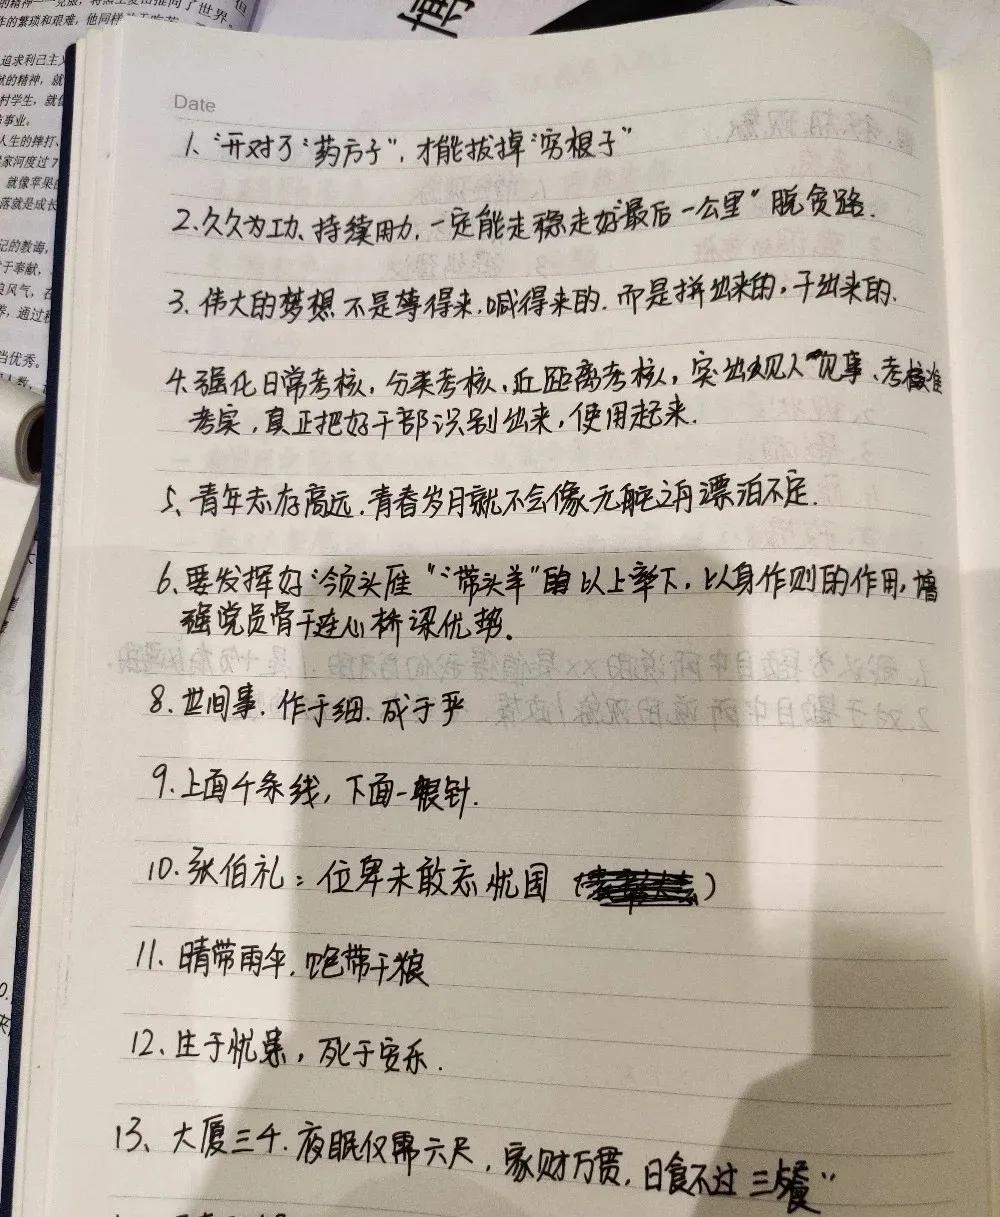 作的繁琐和艰难，他同样
追求利己主义
献的精神，就
村学生，就
事业。
人生的摔打、
家河度过了7
就像苹果
落就是成长
记的教诲，
于奉献，
良风气，在
养，通过
当优秀。
Date
1、"开对了"药方子"，才能拔掉"穷根子"
2.久久为功、持续用力，一定能走稳走好"最后一公里"脱贫路.
3、伟大的梦想不是等得来.喊得来的.而是拼出来的，干出来的.
4.强化日常考核，分类考核、近距离考核，突出以人见事、考核准
考实，真正把好干部识别出来，使用起来.
5、青年志存高远.青春岁月就不会像无舵之舟漂泊不定.
6、要发挥好"领头雁""带头羊"的以上率下，以身作则的作用，增
强党员骨干连心桥梁优势。
8.世间事.作于细.成于严
9.上面千条线，下面一根针.
10.张伯礼：位卑未敢忘忧国（）
11.晴带雨伞.饱带干粮
12、生于忧患，死于安乐.
13、大厦三千.夜眠仅需六尺，家财万贯，日食不过三餐"